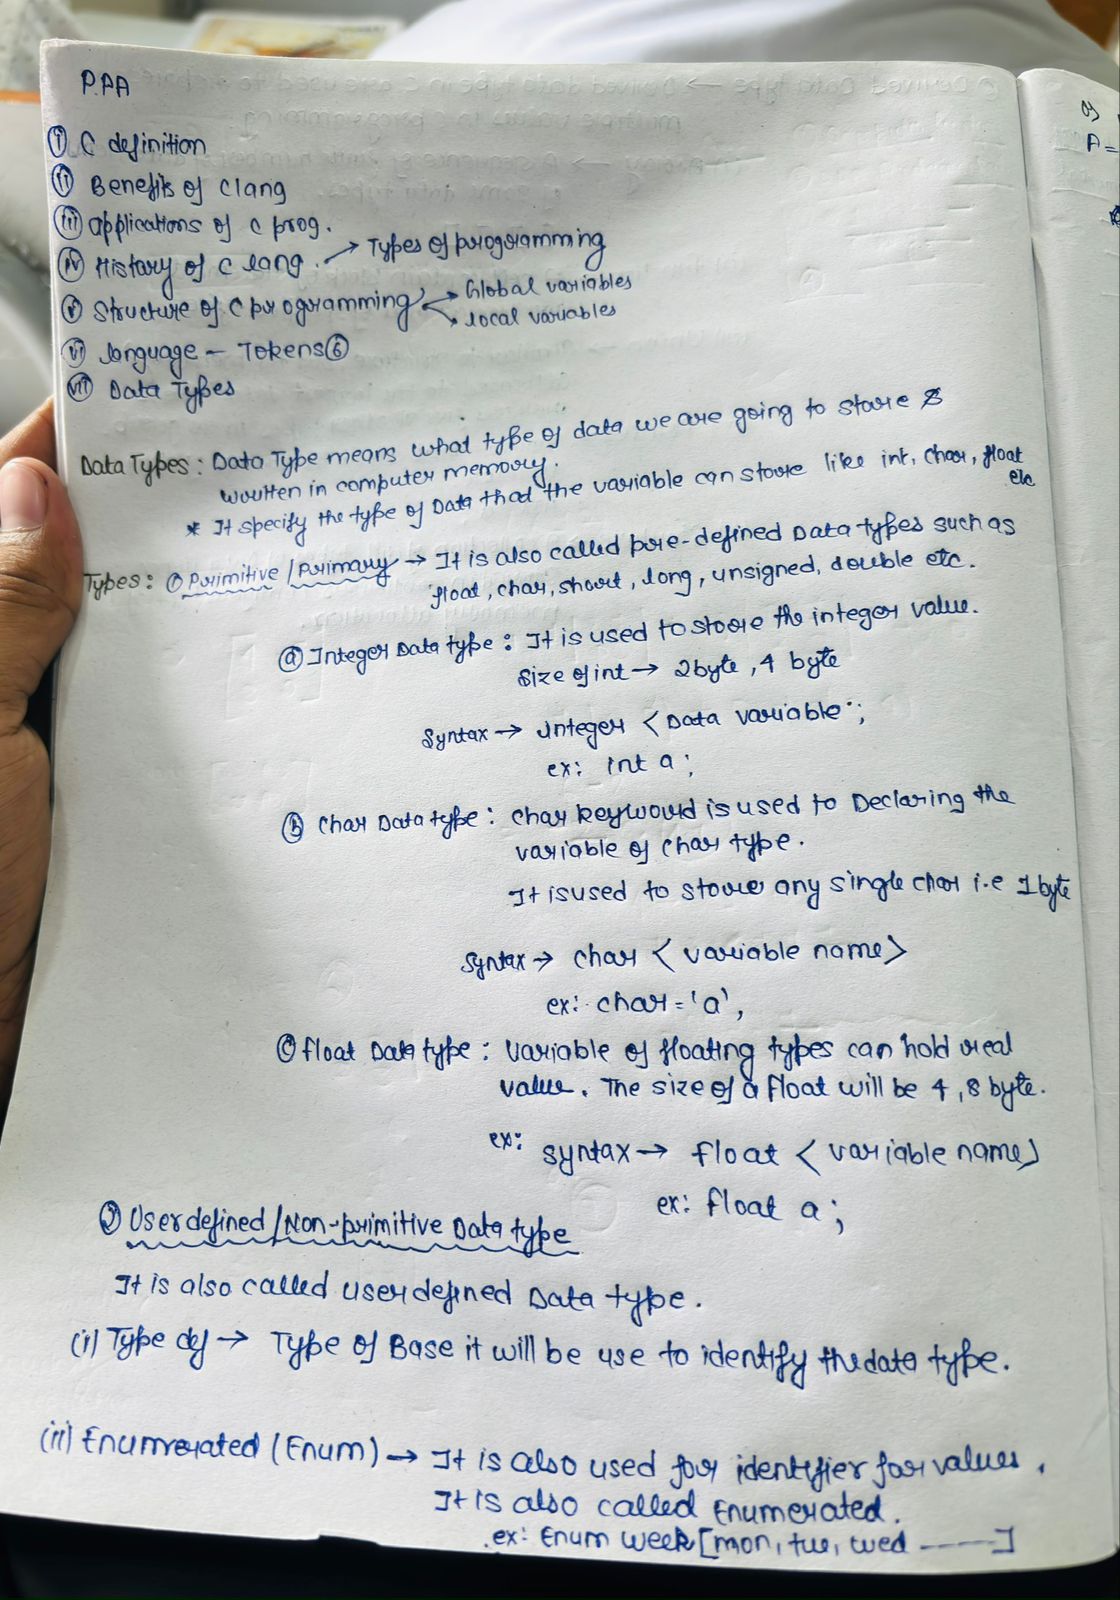 P.PA
(i) C definition
(ii) Benefits of Clang
(iii) applications of c prog.
(iv) History of C lang. → Types of programming
(v) Structure of C programming → Global variables
→ local variables
(vi) language - Tokens⑥
(vii) Data Types
Data Types : Data Type means what type of data we are going to store &
written in computer memory.
* It specify the type of Data that the variable can store like int, char, float
etc
Types : ① Primitive / Primary → It is also called pre-defined Data types such as
float, char, short, long, unsigned, double etc.
ⓐ Integer Data type : It is used to store the integer value.
Size of int → 2byte, 4 byte
Syntax → integer < Data variable ;
ex: int a ;
ⓑ Char Data type : Char keyword is used to Declaring the
variable of char type.
It is used to store any single char i.e 1 byte
Syntax → char < variable name>
ex: char = 'a',
ⓒ float Data type : Variable of floating types can hold real
value. The size of a float will be 4, 8 byte.
ex: Syntax → float < variable name>
ex: float a ;
② User defined / Non-primitive Data type
It is also called user defined Data type.
(i) Type def → Type of Base it will be use to identify the data type.
(ii) Enumerated (Enum) → It is also used for identifier for values.
It is also called Enumerated.
ex: Enum week [mon, tue, wed ------]